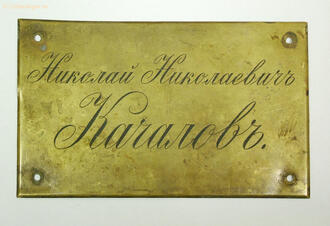 Николай Николаевичъ
Качаловъ.